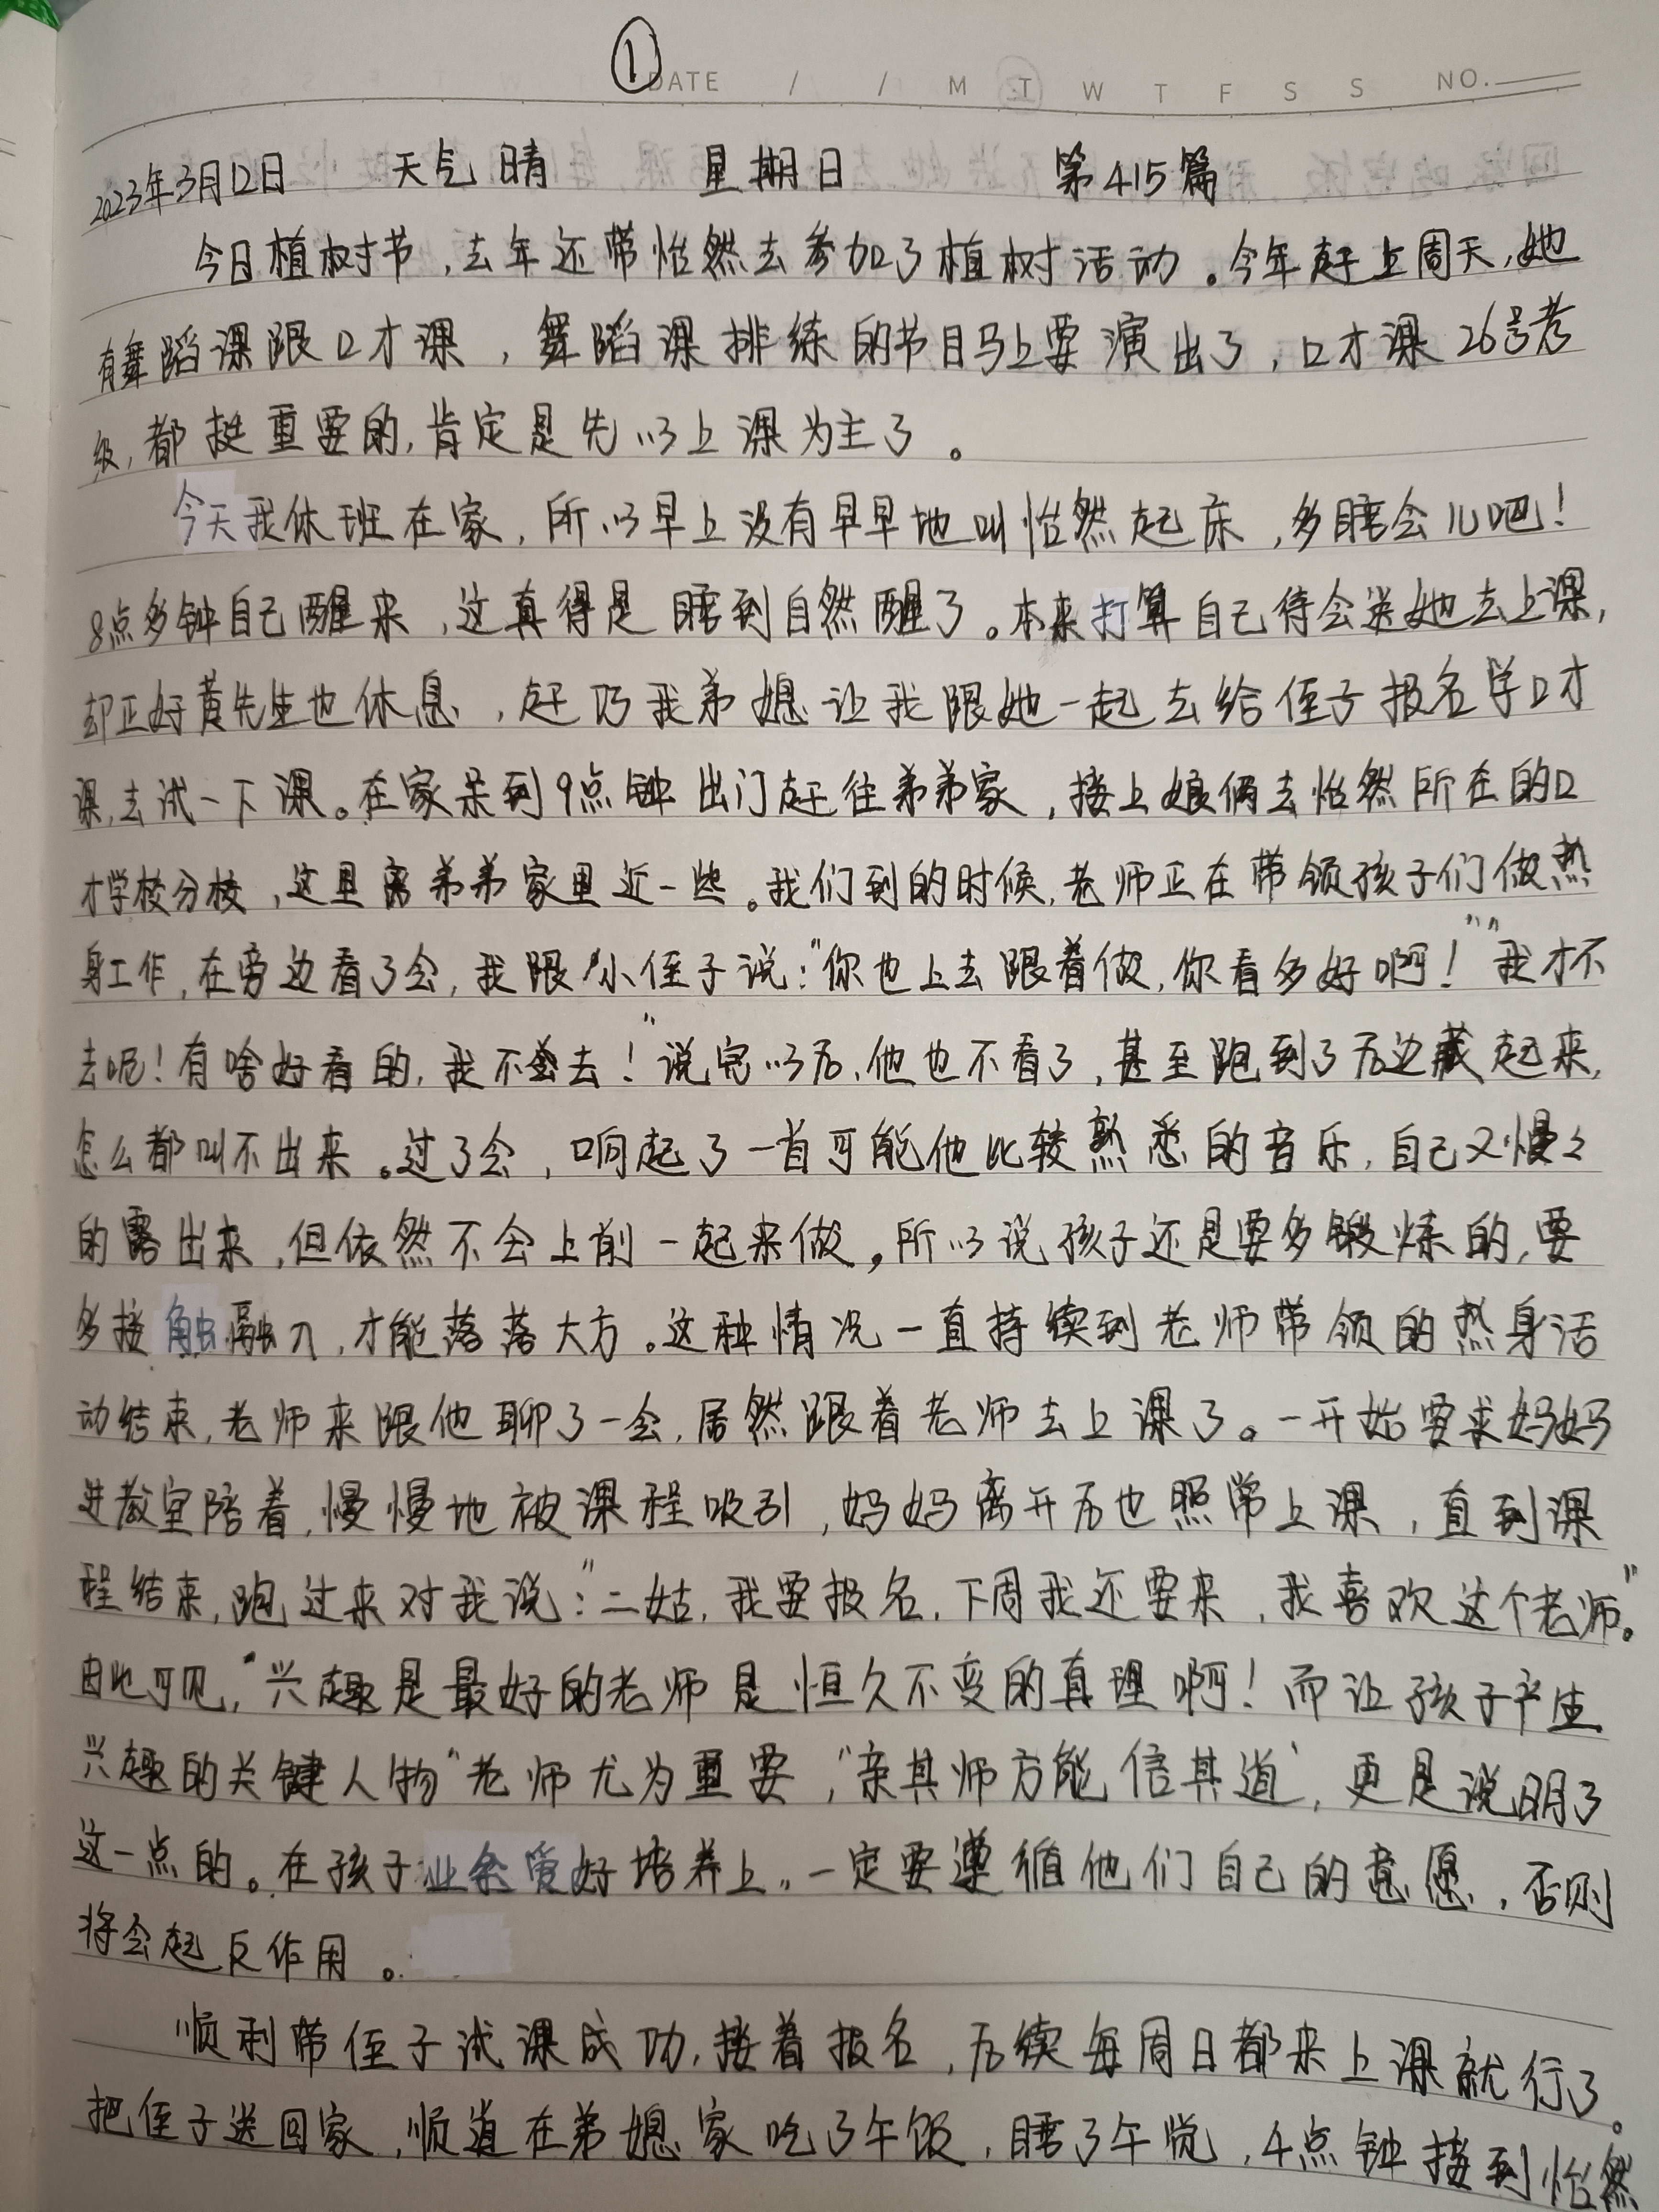 ①
DATE / / M T W T F S S NO.
2023年3月12日 天气 晴 星期日 第415篇
今日植树节，去年还带怡然去参加了植树活动。今年赶上周天，她
有舞蹈课跟口才课，舞蹈课排练的节目马上要演出了，口才课26号考
级，都挺重要的，肯定是先以上课为主了。
今天我休班在家，所以早上没有早早地叫怡然起床，多睡会儿吧！
8点多钟自己醒来，这真得是睡到自然醒了。本来打算自己待会送她去上课，
却正好黄先生也休息，赶巧我弟媳让我跟她一起去给侄子报名学口才
课，去试一下课。在家呆到9点钟出门赶往弟弟家，接上娘俩去怡然所在的口
才学校分校，这里离弟弟家里近一些。我们到的时候，老师正在带领孩子们做热
身工作，在旁边看了会，我跟小侄子说：“你也上去跟着做，你看多好啊！”“我才不
去呢！有啥好看的，我不去！”说完以后，他也不看了，甚至跑到了后边藏起来，
怎么都叫不出来。过了会，响起了一首可能他比较熟悉的音乐，自己又慢々
的露出来，但依然不会上前一起来做。所以说孩子还是要多锻炼的，要
多接触融入，才能落落大方。这种情况一直持续到老师带领的热身活
动结束，老师来跟他聊了一会，居然跟着老师去上课了。一开始要求妈妈
进教室陪着，慢慢地被课程吸引，妈妈离开后也照常上课，直到课
程结束，跑过来对我说：“二姑，我要报名，下周我还要来，我喜欢这个老师。”
由此可见，“兴趣是最好的老师是恒久不变的真理啊！而让孩子产生
兴趣的关键人物“老师尤为重要，“亲其师方能信其道”，更是说明了
这一点的。在孩子业余爱好培养上，一定要遵循他们自己的意愿，否则
将会起反作用。
顺利带侄子试课成功，接着报名，后续每周日都来上课就行了。
把侄子送回家，顺道在弟媳家吃了午饭，睡了午觉，4点钟接到怡然